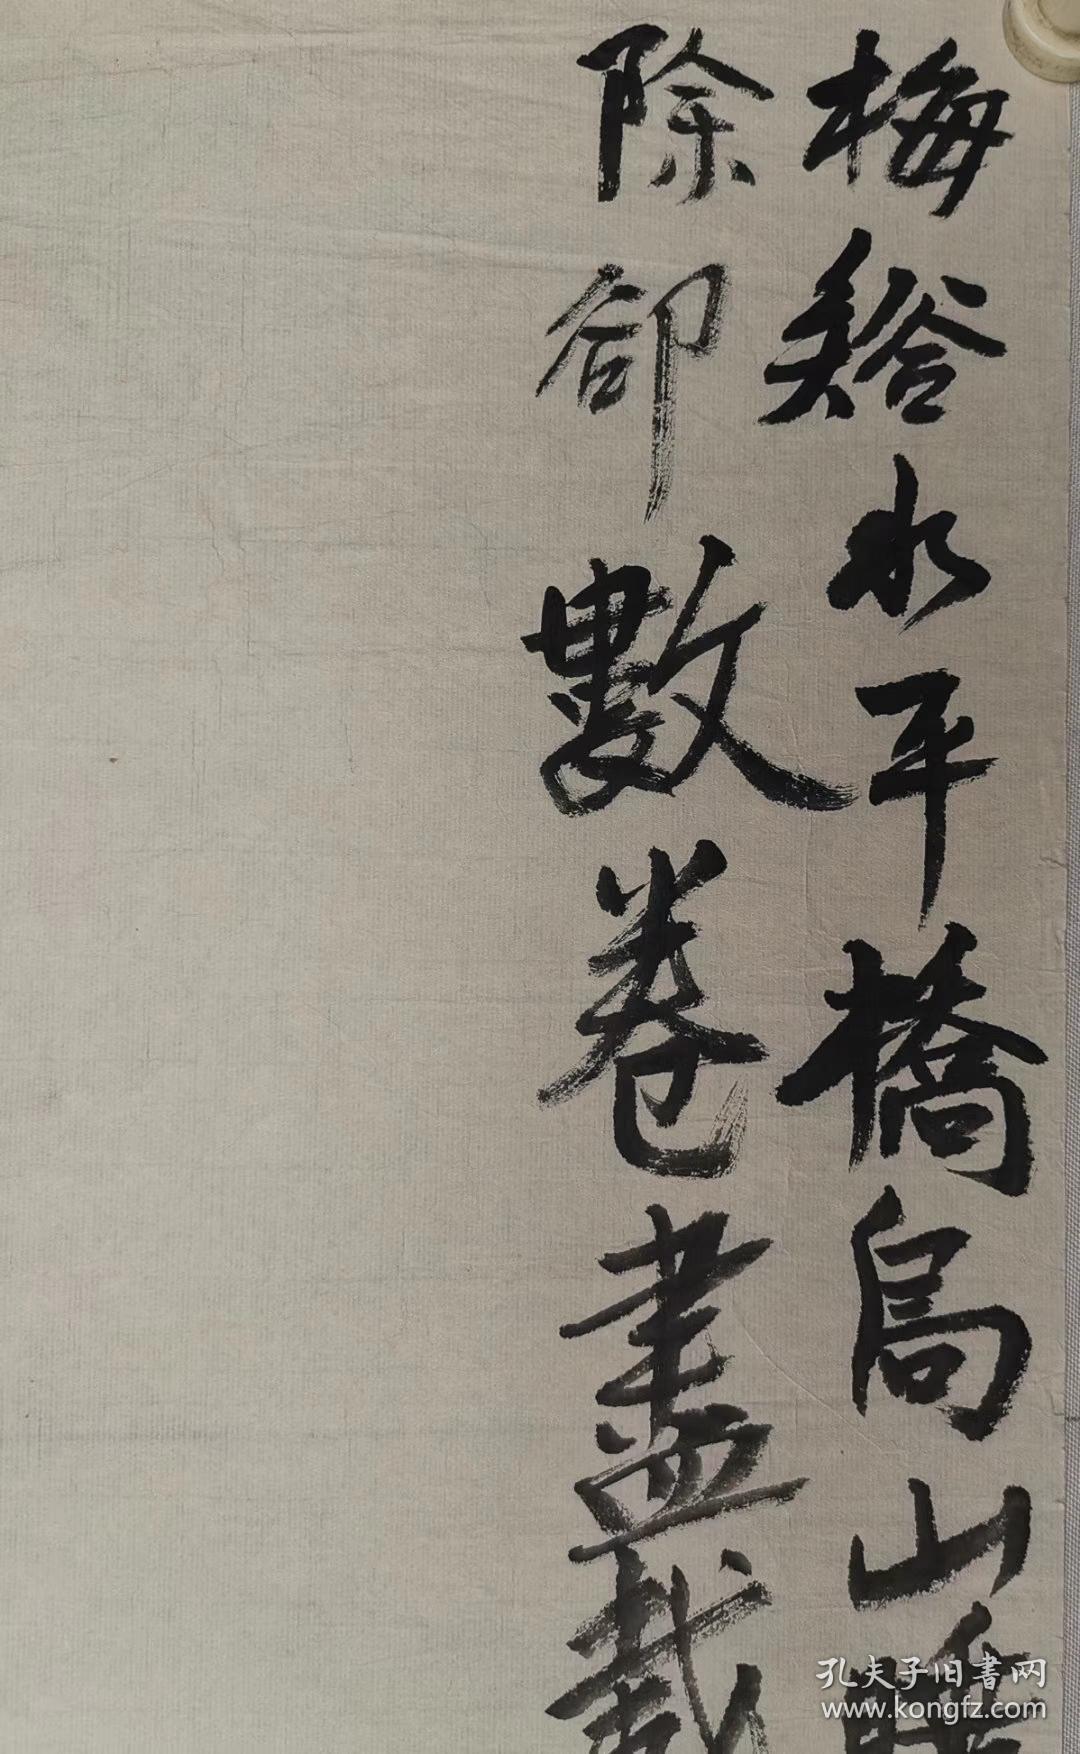 梅谿水平橋烏山睡
除卻數卷盡載
孔夫子旧書网
www.kongfz.com